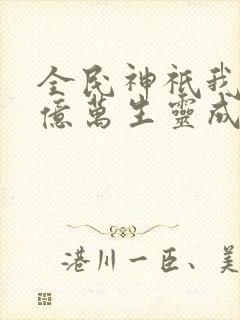 全民神祇我
億萬生靈成
港川一臣、美